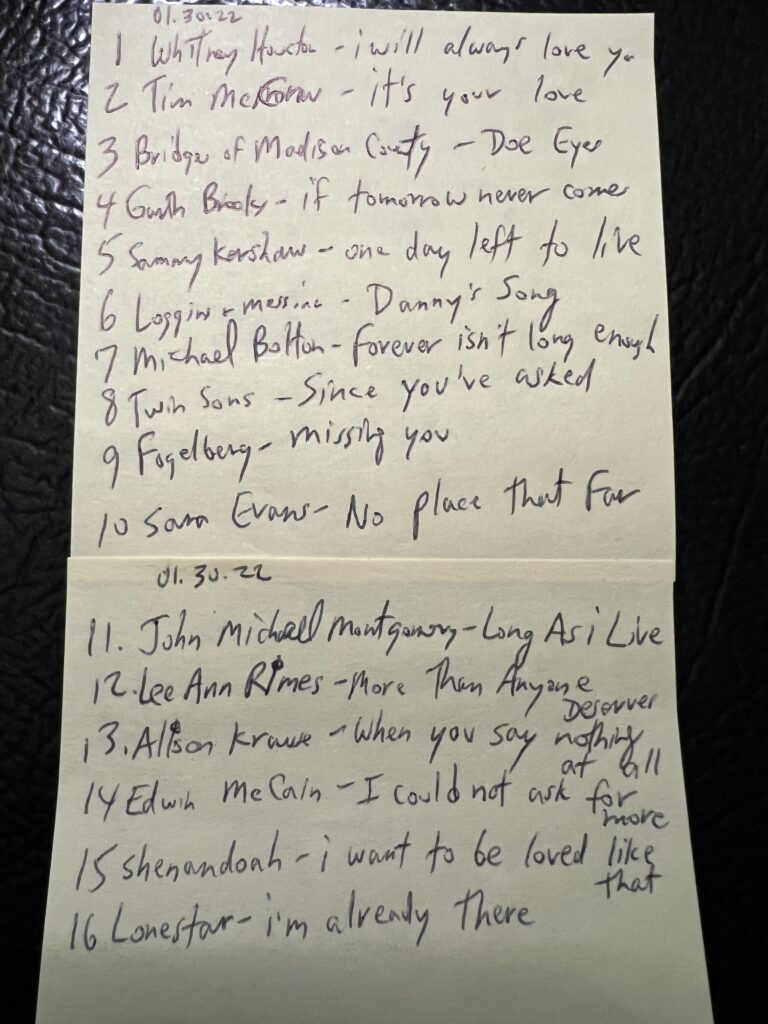 01.30.22
1 Whitney Houston - i will always love you
2 Tim McGraw - it's your love
3 Bridges of Madison County - Doe Eyes
4 Garth Brooks - if tomorrow never comes
5 Sammy Kershaw - one day left to live
6 Loggins & messina - Danny's Song
7 Michael Bolton - Forever isn't long enough
8 Twin Sons - Since you've asked
9 Fogelberg - missing you
10 Sara Evans - No place that Far
01.30.22
11. John Michael Montgomery - Long As i Live
12. Lee Ann Rimes - More Than Anyone
Deserves
13. Alison Krause - When you say nothing
at all
14 Edwin McCain - I could not ask for
more
15 Shenandoah - i want to be loved like
that
16 Lonestar - i'm already there